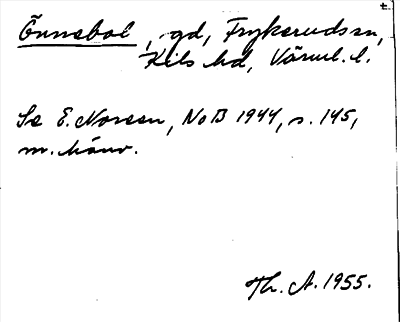 Önnebol, gd, Frykeruds sn,
Kils hd, Värml. l.
Se E. Noreen, NoB 1944, s. 145,
m. hänv.
Th. A. 1955.